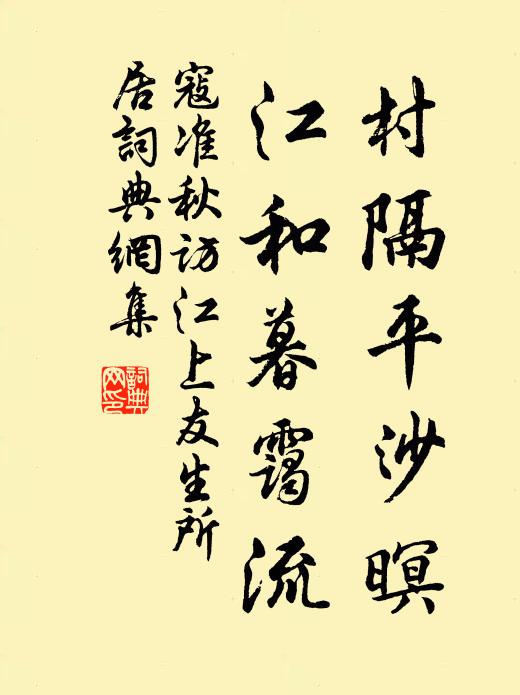 村隔平沙暝
江和暮靄流
寇准秋訪江上友生所
居詞典網集
詞典
网印